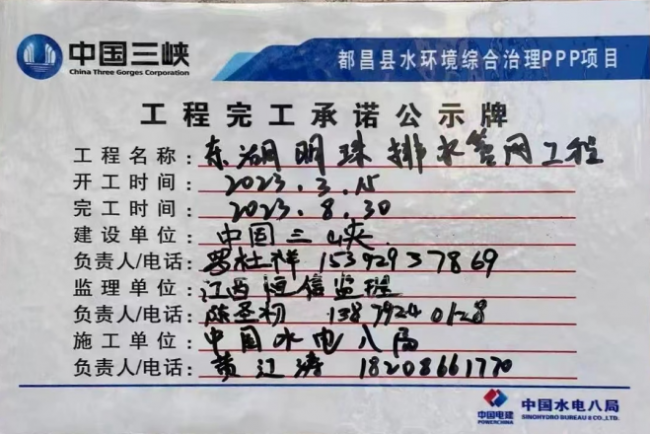 中国三峡
China Three Gorges Corporation
都昌县水环境综合治理PPP项目
工程完工承诺公示牌
工程名称：东湖明珠排水管网工程
开工时间：2023.3.15
完工时间：2023.8.30
建设单位：中国三峡
负责人/电话：罗杜祥 15392937869
监理单位：江西恒信监理
负责人/电话：陈圣初 13879240128
施工单位：中国水电八局
负责人/电话：黄江涛 18208661770
中国电建
POWERCHINA
中国水电八局
SINOHYDRO BUREAU 8 CO.,LTD.